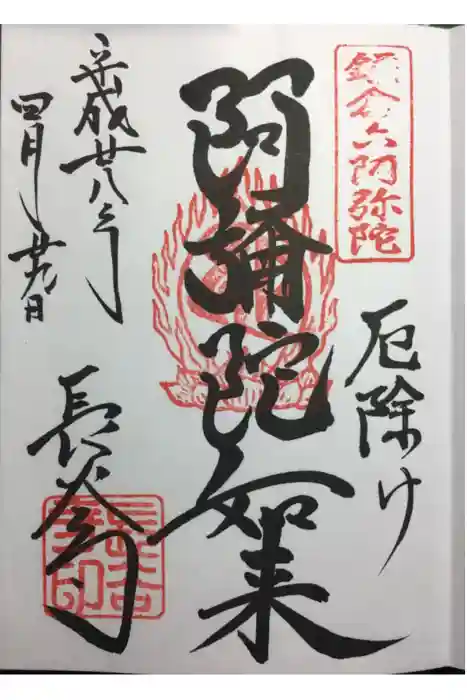 鎌倉六阿弥陀
厄除け
阿彌陀如来
平成廿八年
四月廿九日
長谷寺
長谷寺印